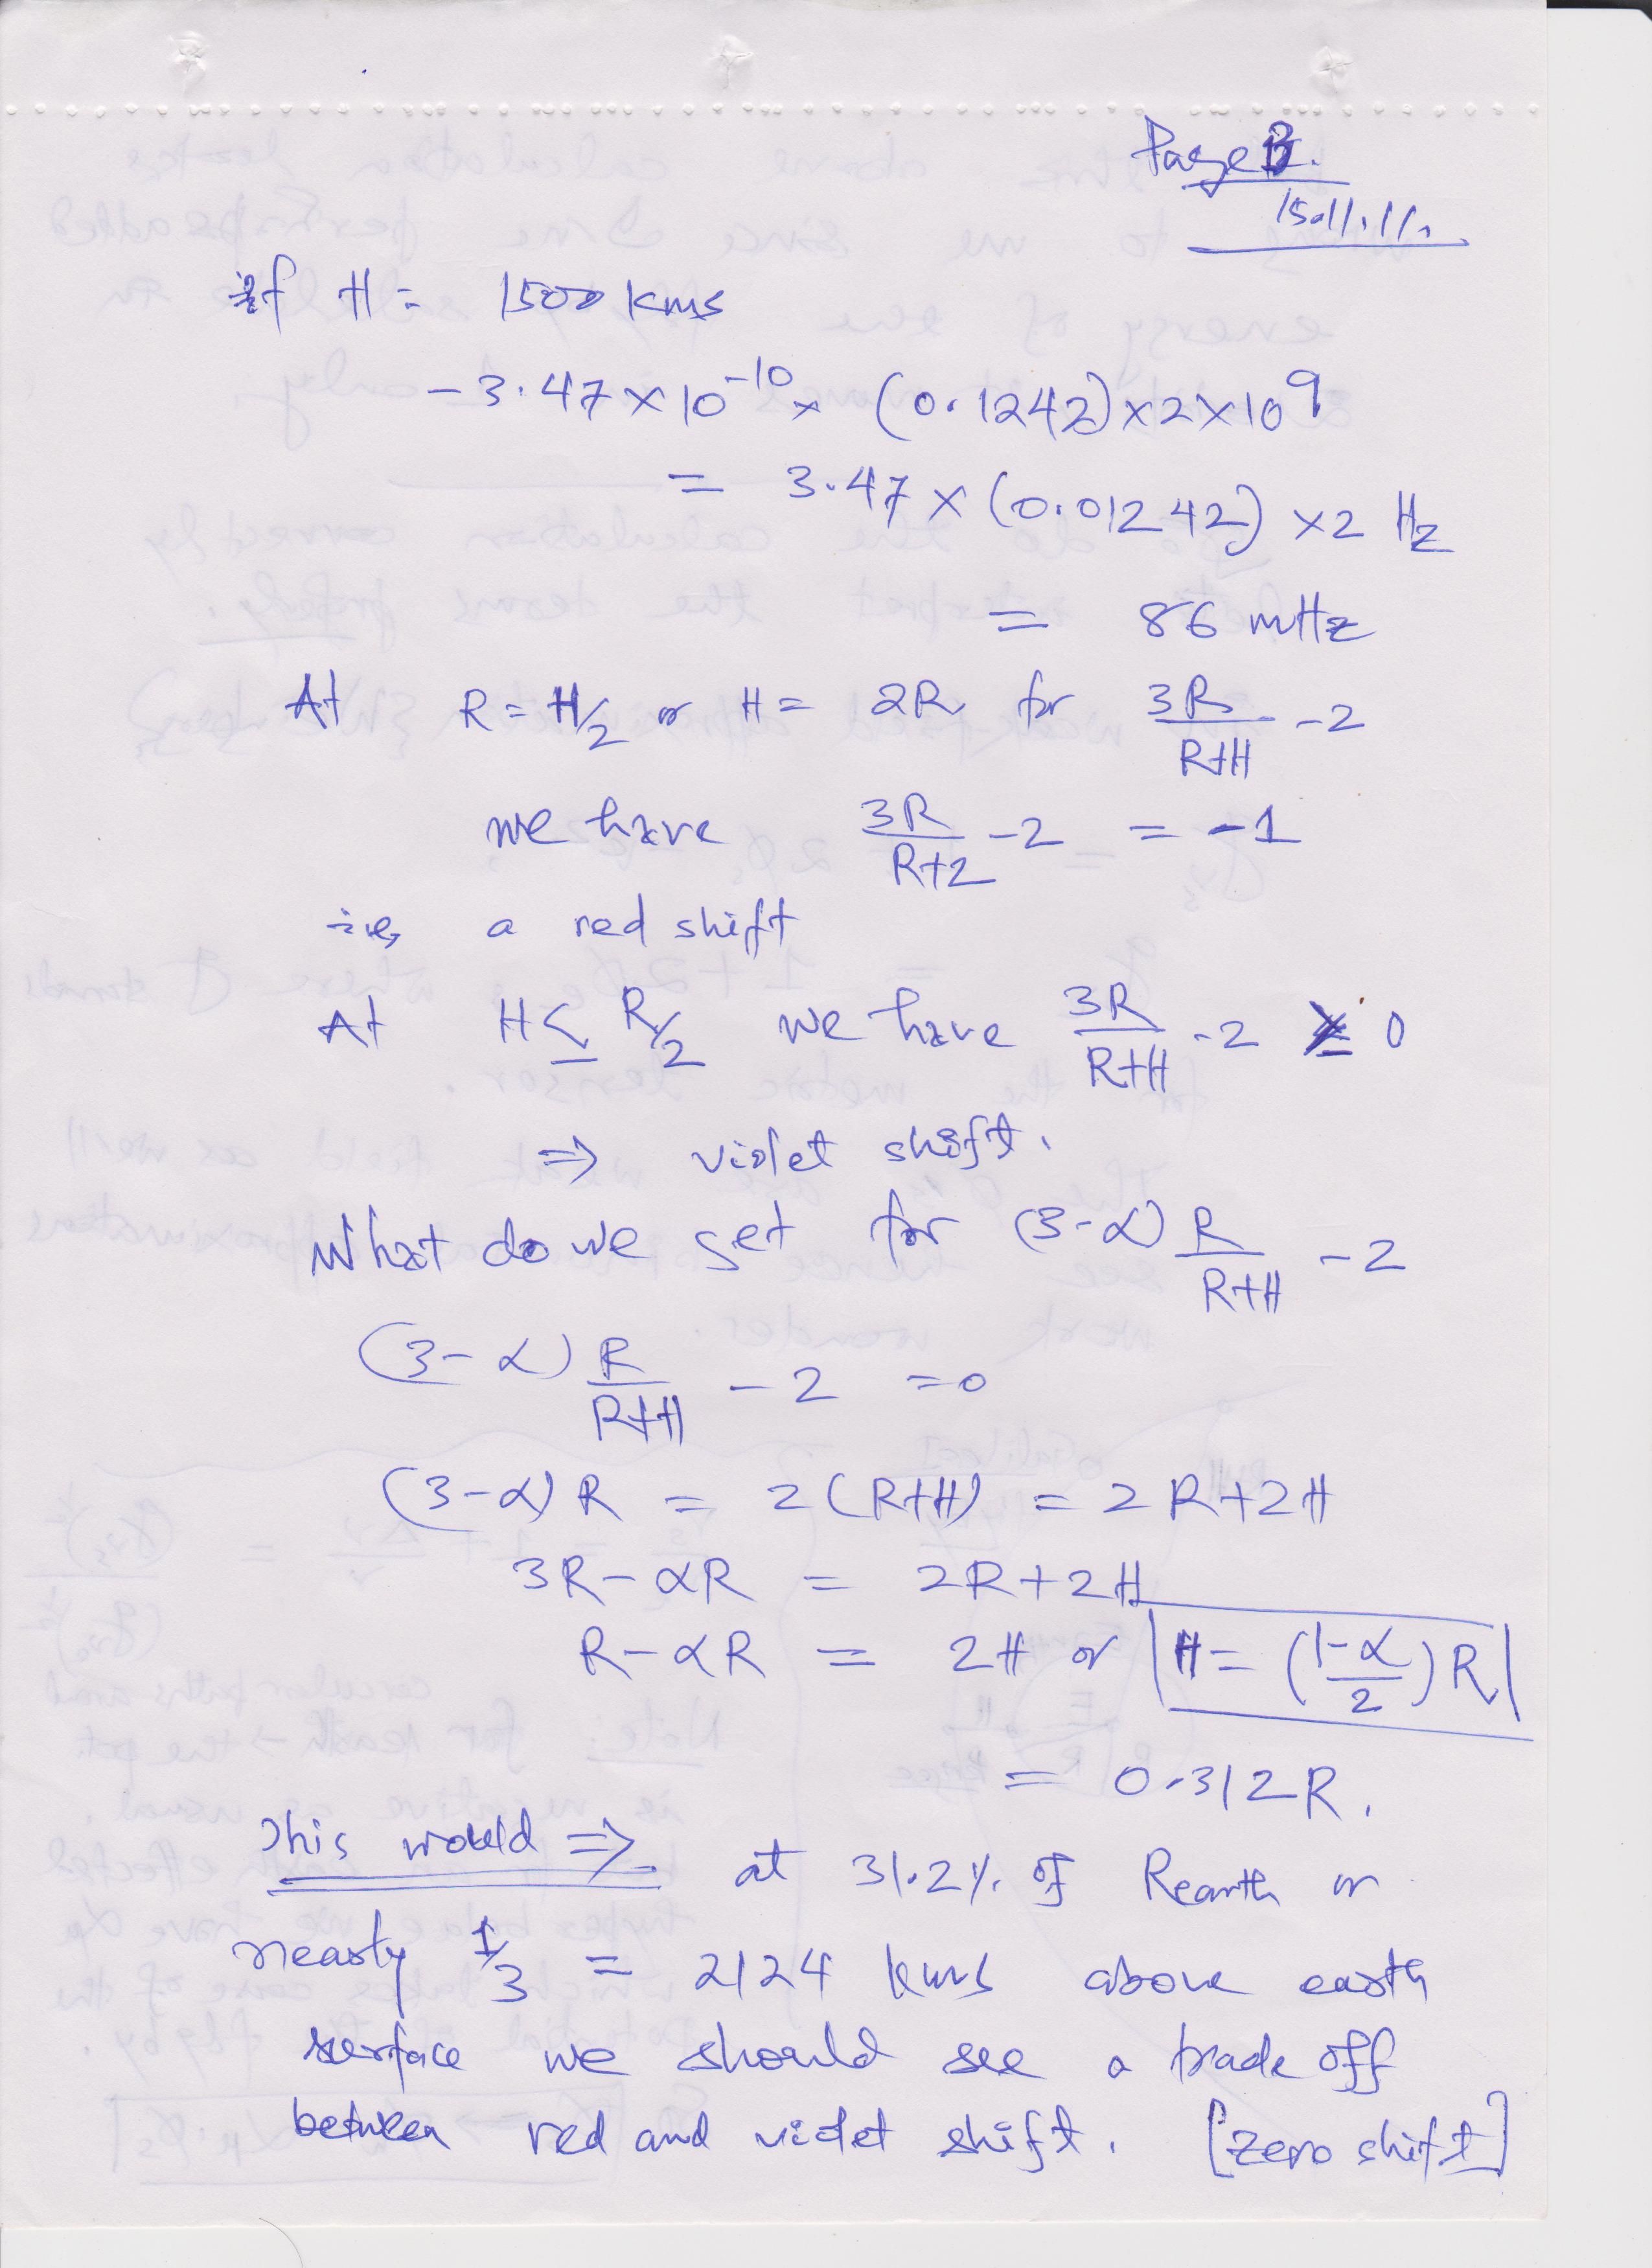 Page 3.
15.11.11.
if H = 1500 Kms
-3.47 × 10^-10 × (0.1242) × 2 × 10^9
= 3.47 × (0.01242) × 2 Hz
= 86 mHz
At R = H/2 or H = 2R for 3R/(R+H) - 2
we have 3R/(R+2) - 2 = -1
i.e, a red shift
At H ≤ R/2 we have 3R/(R+H) - 2 ≥ 0
⇒ violet shift.
What do we get for (3-α) R/(R+H) - 2
(3-α) R/(R+H) - 2 = 0
(3-α) R = 2(R+H) = 2R+2H
3R-αR = 2R+2H
R-αR = 2H or H = (1-α/2) R
= 0.312R.
This would ⇒ at 31.2% of Rearth or
nearly 1/3 = 2124 kms above earth
surface we should see a trade off
between red and violet shift. [zero shift]